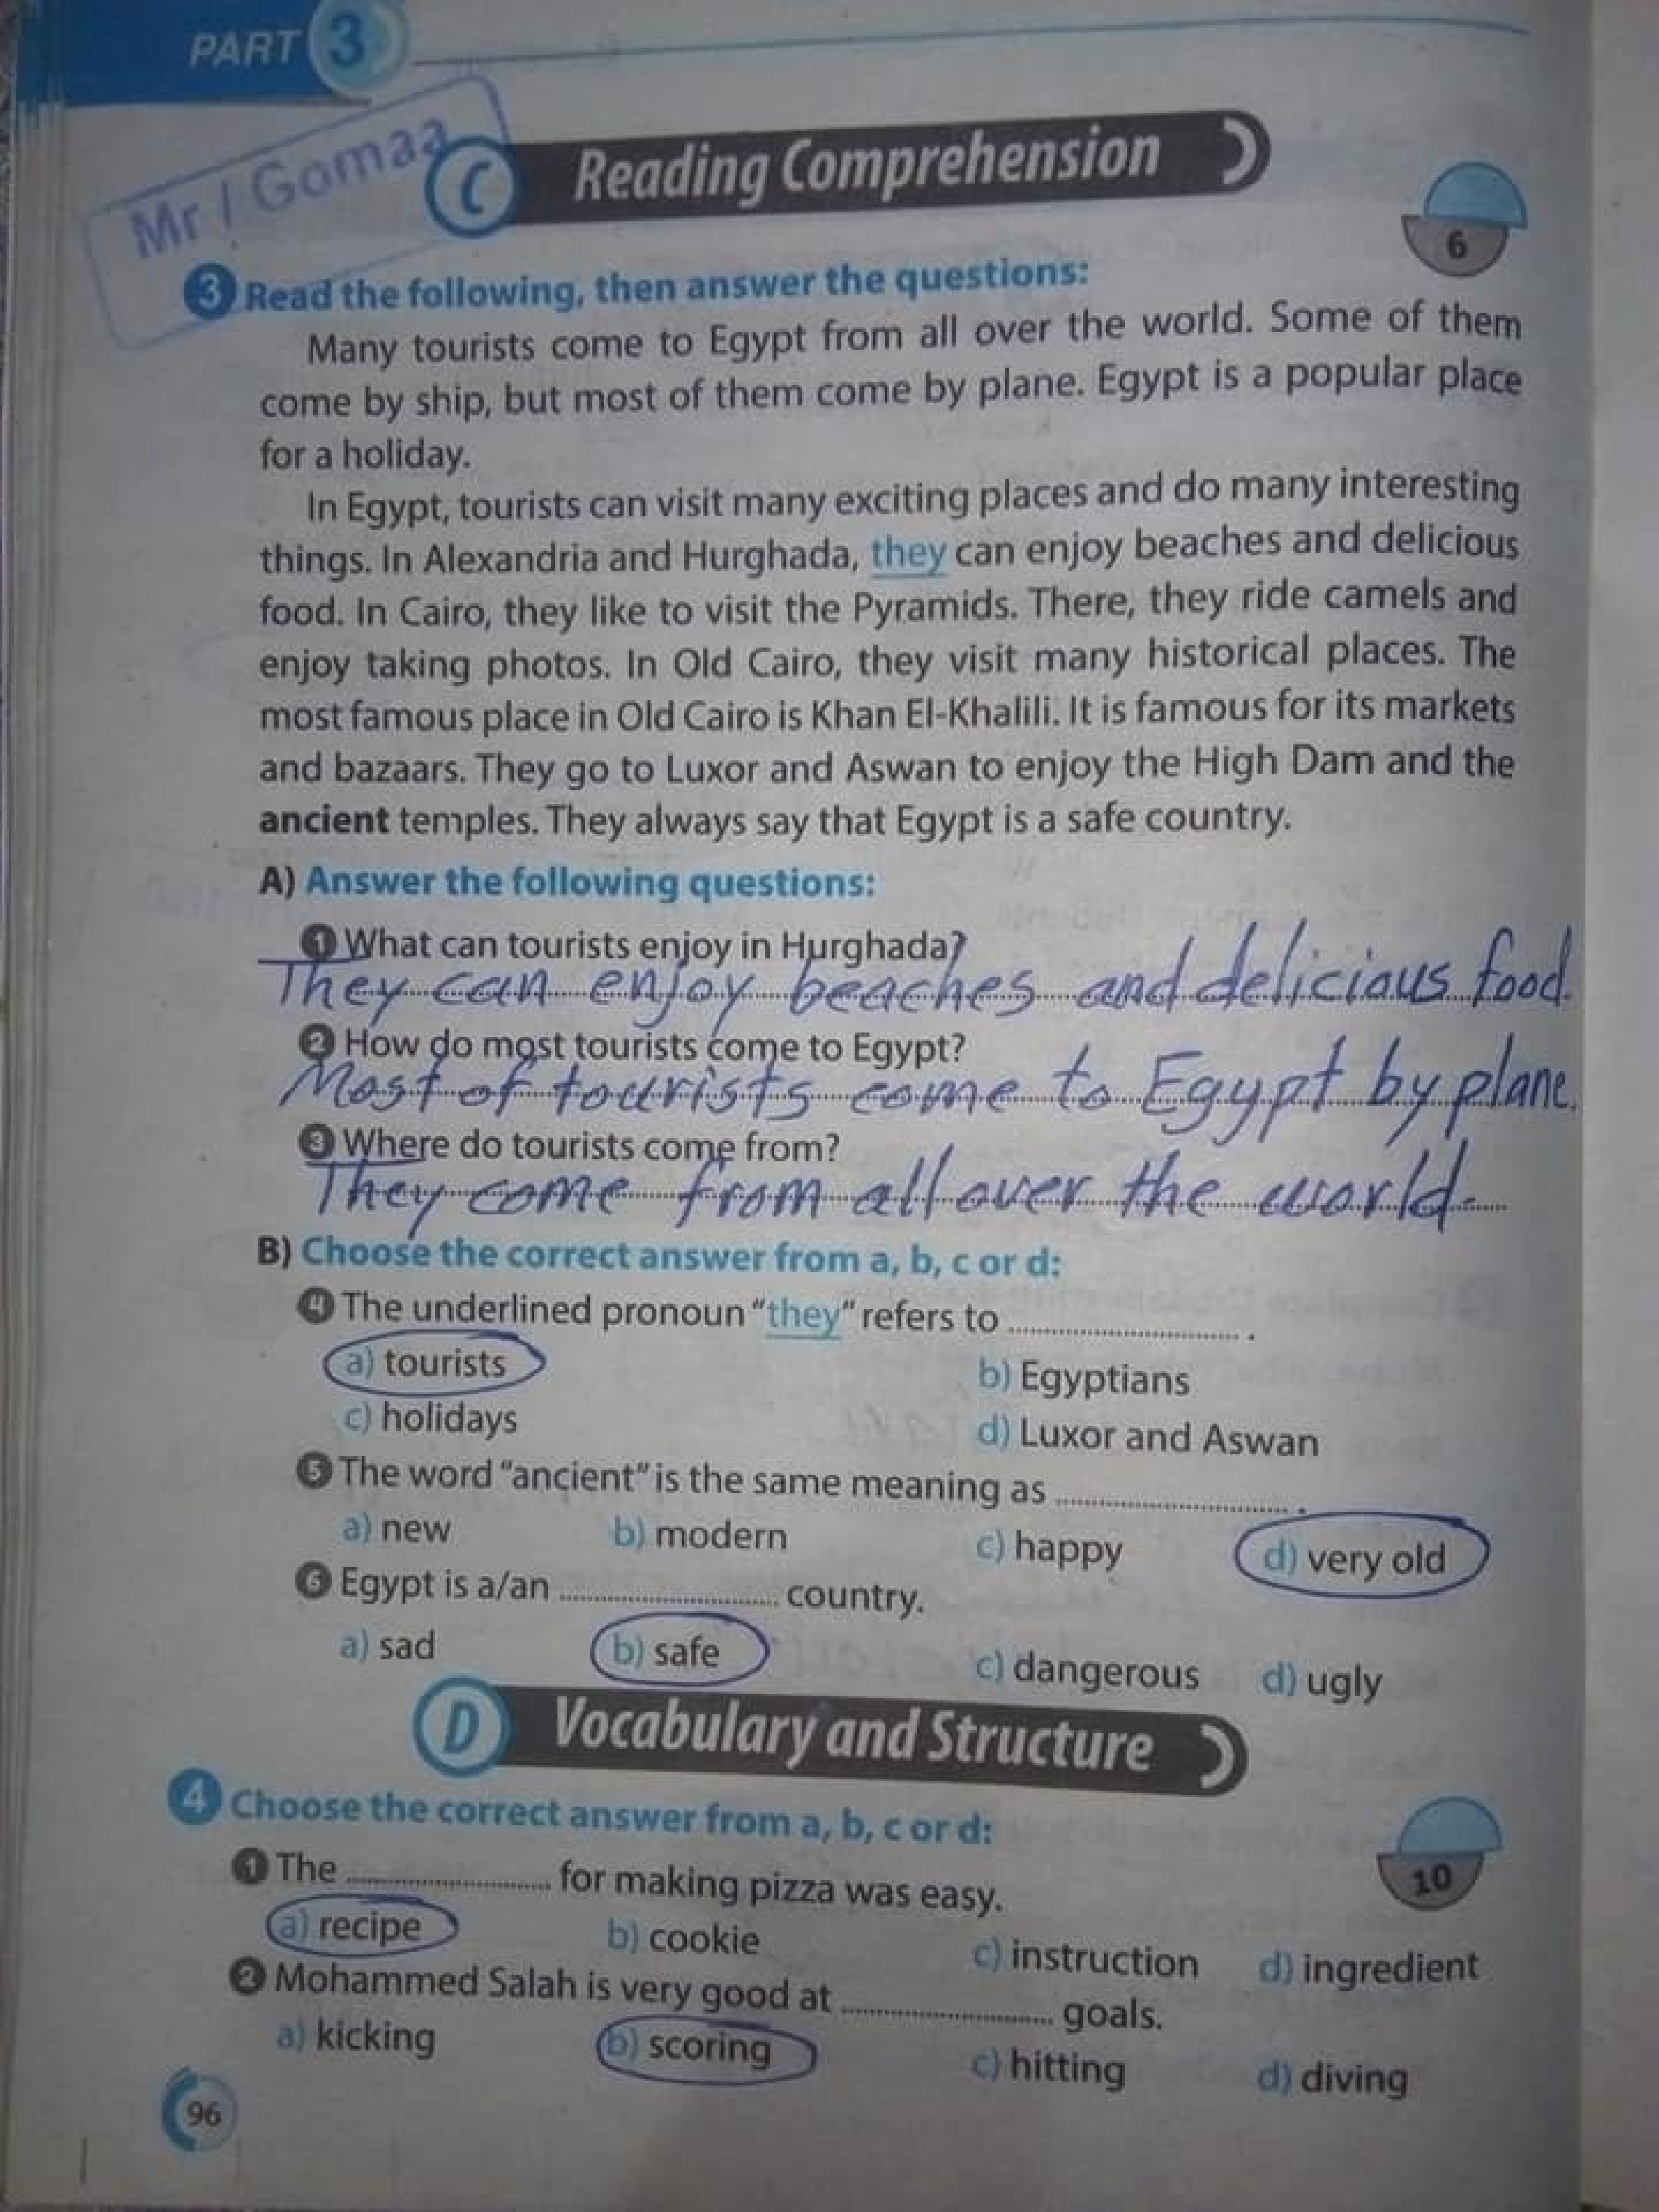 PART 3
Mr / Gomaa
C Reading Comprehension
6
3 Read the following, then answer the questions:
Many tourists come to Egypt from all over the world. Some of them
come by ship, but most of them come by plane. Egypt is a popular place
for a holiday.
In Egypt, tourists can visit many exciting places and do many interesting
things. In Alexandria and Hurghada, they can enjoy beaches and delicious
food. In Cairo, they like to visit the Pyramids. There, they ride camels and
enjoy taking photos. In Old Cairo, they visit many historical places. The
most famous place in Old Cairo is Khan El-Khalili. It is famous for its markets
and bazaars. They go to Luxor and Aswan to enjoy the High Dam and the
ancient temples. They always say that Egypt is a safe country.
A) Answer the following questions:
1 What can tourists enjoy in Hurghada?
They can enjoy beaches and delicious food.
2 How do most tourists come to Egypt?
Most of tourists come to Egypt by plane.
3 Where do tourists come from?
They come from all over the world.
B) Choose the correct answer from a, b, c or d:
4 The underlined pronoun "they" refers to .................... .
a) tourists b) Egyptians
c) holidays d) Luxor and Aswan
5 The word "ancient" is the same meaning as .................... .
a) new b) modern c) happy d) very old
6 Egypt is a/an .................... country.
a) sad b) safe c) dangerous d) ugly
D Vocabulary and Structure
4 Choose the correct answer from a, b, c or d:
10
1 The .................... for making pizza was easy.
a) recipe b) cookie c) instruction d) ingredient
2 Mohammed Salah is very good at .................... goals.
a) kicking b) scoring c) hitting d) diving
96